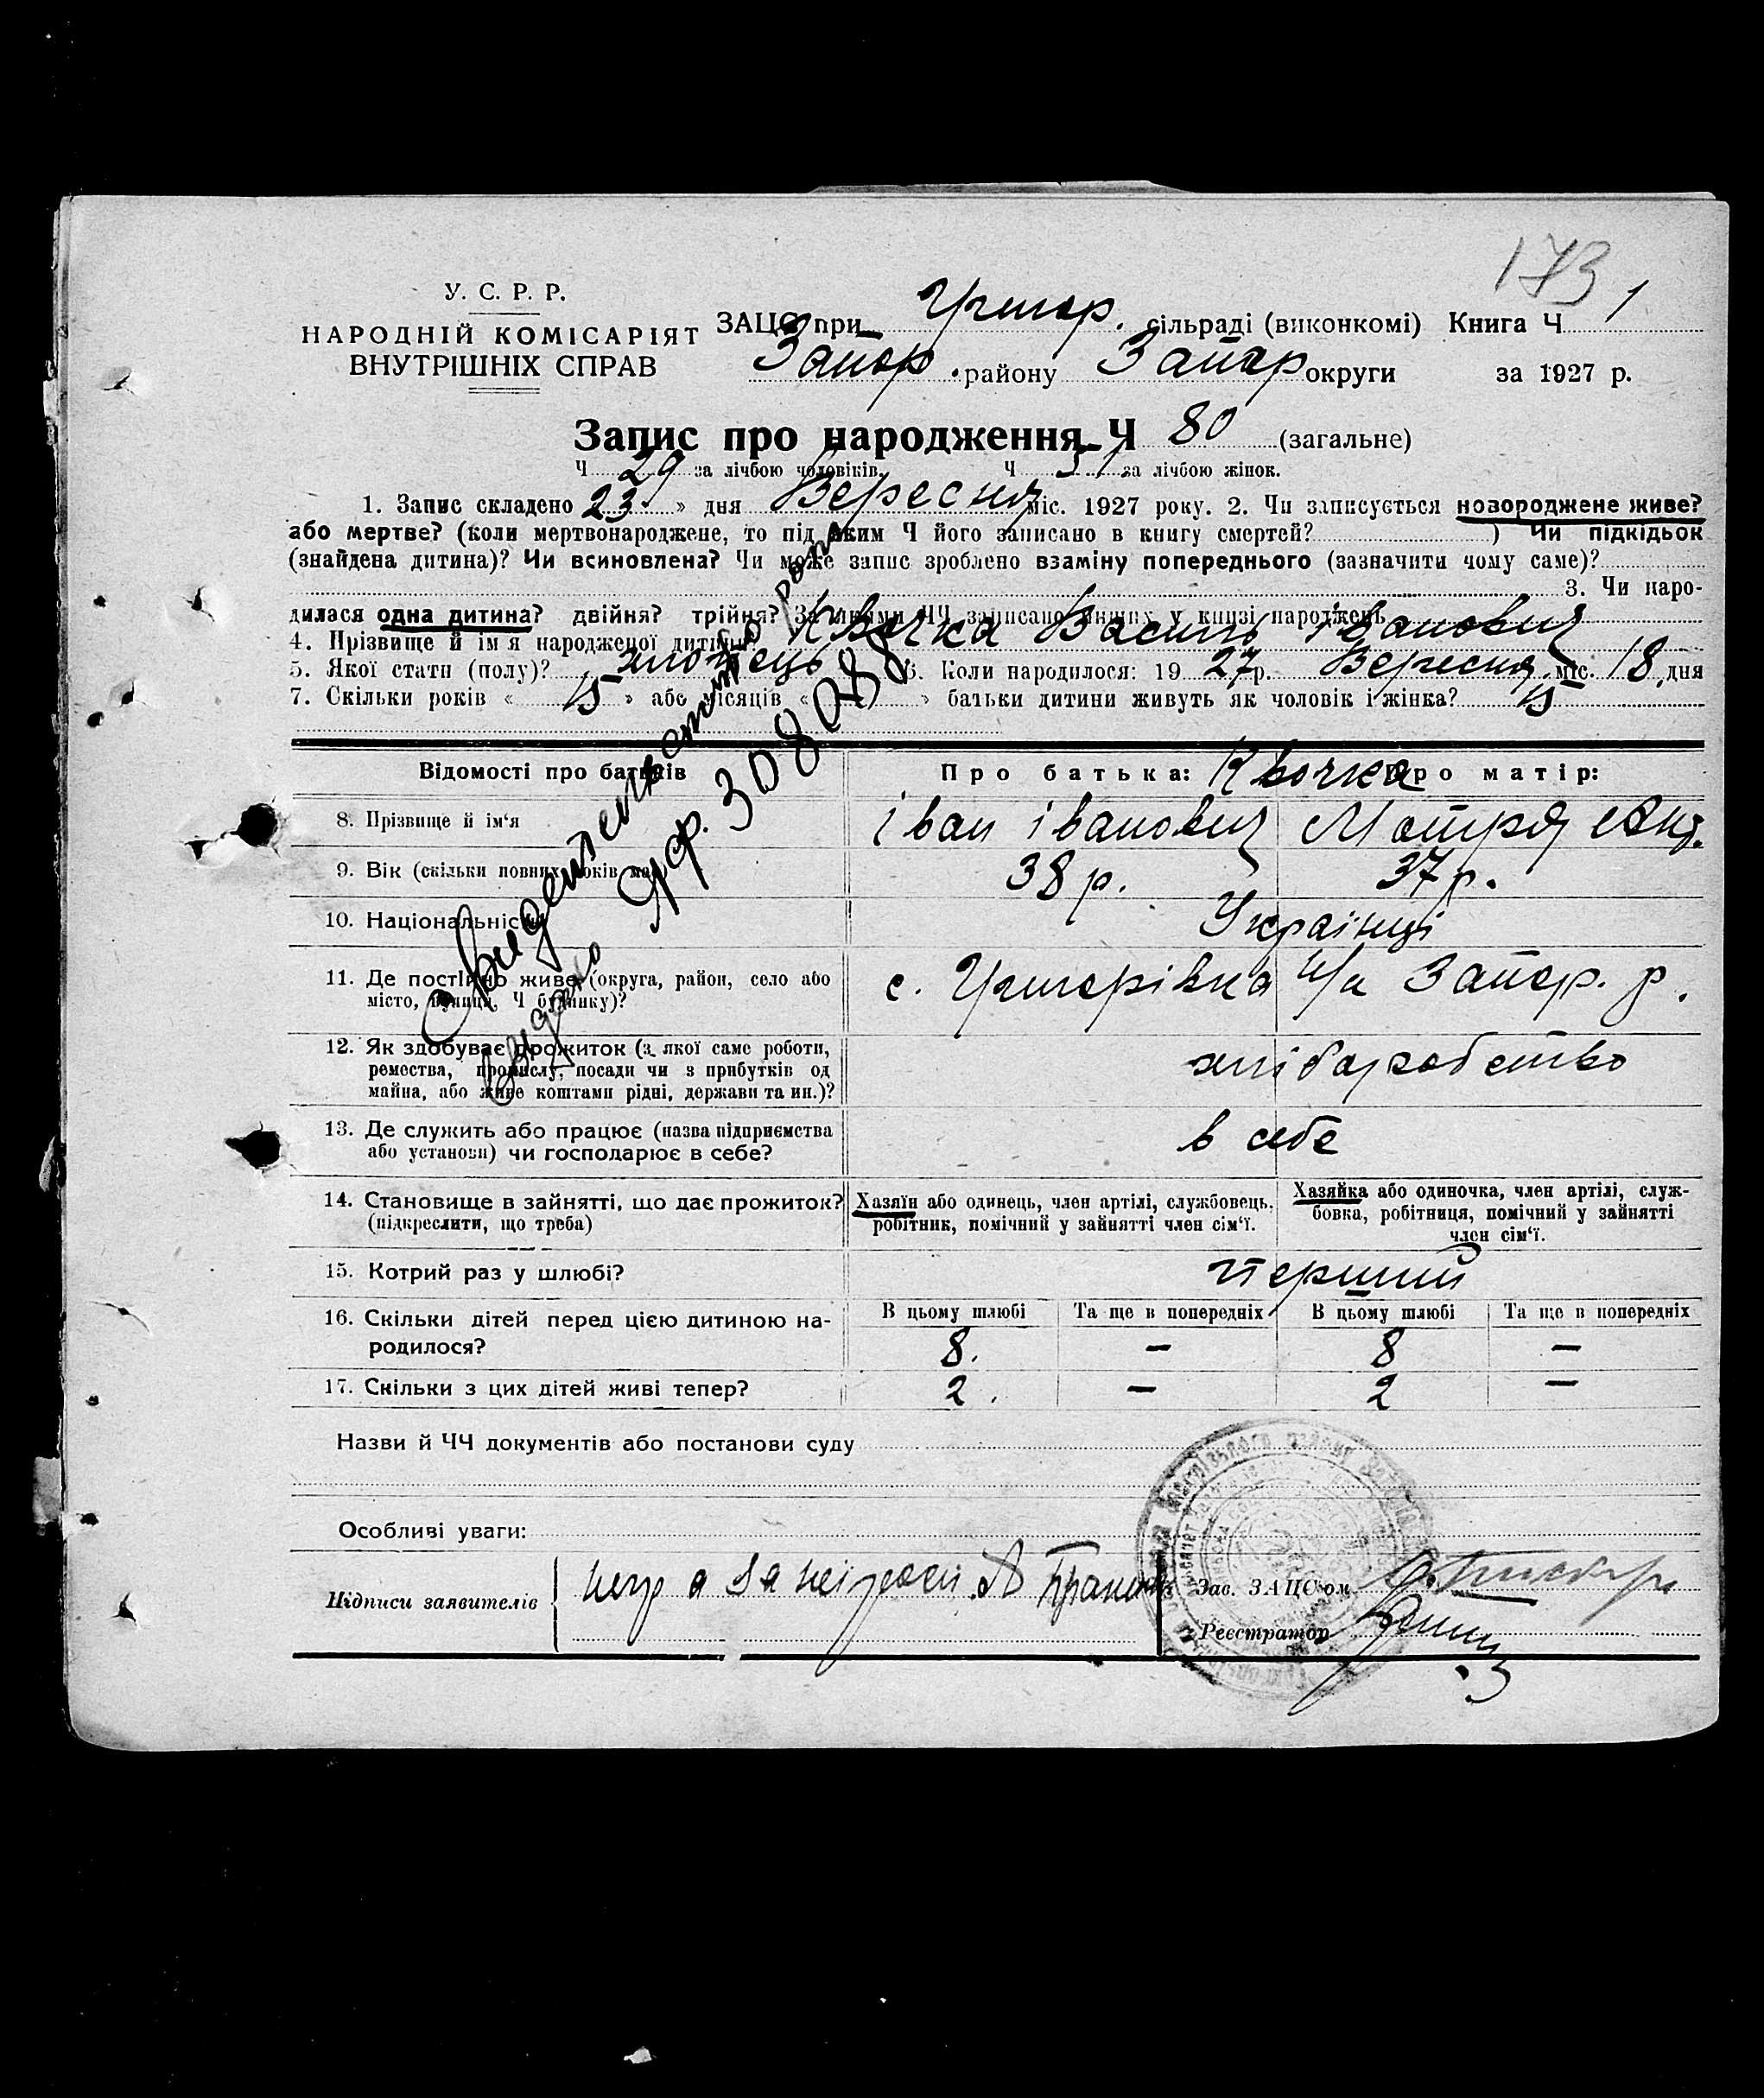 173
У. С. Р. Р.
НАРОДНІЙ КОМІСАРІЯТ
ВНУТРІШНІХ СПРАВ
ЗАЦС при Григор. сільраді (виконкомі) Книга Ч 1
Запор. району Запор округи за 1927 р.
Запис про народження Ч 80 (загальне)
Ч 29 за лічбою чоловіків. Ч 51 за лічбою жінок.
1. Запис складено 23 » дня Вересня міс. 1927 року. 2. Чи записується новороджене живе?
або мертве? (коли мертвонароджене, то під яким Ч його записано в книгу смертей? ) Чи підкідьок
(знайдена дитина)? Чи всиновлена? Чи може запис зроблено взаміну попереднього (зазначити чому саме)?
3. Чи наро-
дилася одна дитина? двійня? трійня? За якими ЧЧ записано инших у книзі народжень
4. Прізвище й ім'я народженої дитини? Квочка Василь Іванович
5. Якої стати (полу)? хлопець 6. Коли народилося: 1927 р. Вересня міс. 18 дня
7. Скільки років « 15 » або місяців « » батьки дитини живуть як чоловік і жінка? 15
Відомості про батьків Про батька: Квочка Про матір:
8. Прізвище й ім'я Іван Іванович Мотря Анд.
9. Вік (скільки повних років має) 38 р. 37 р.
10. Національність Українці
11. Де постійно живе (округа, район, село або
місто, вулиця, Ч будинку)? с. Григорівка Запор. р.
12. Як здобуває прожиток (з якої саме роботи,
ремества, промислу, посади чи з прибутків од
майна, або живе коштами рідні, держави та ин.)? хліборобство
13. Де служить або працює (назва підприємства
або установи) чи господарює в себе? в себе
14. Становище в зайнятті, що дає прожиток?
(підкреслити, що треба)
Хазяїн або одинець, член артілі, службовець,
робітник, помічний у зайнятті член сім'ї.
Хазяйка або одиночка, член артілі, служ-
бовка, робітниця, помічний у зайнятті
член сім'ї.
15. Котрий раз у шлюбі? перший
16. Скільки дітей перед цією дитиною на-
родилося?
В цьому шлюбі Та ще в попередніх В цьому шлюбі Та ще в попередніх
8. — 8 —
17. Скільки з цих дітей живі тепер? 2. — 2 —
Назви й ЧЧ документів або постанови суду
Особливі уваги:
Підписи заявителів
Зав. ЗАЦС'ом
Реєстратор
308088